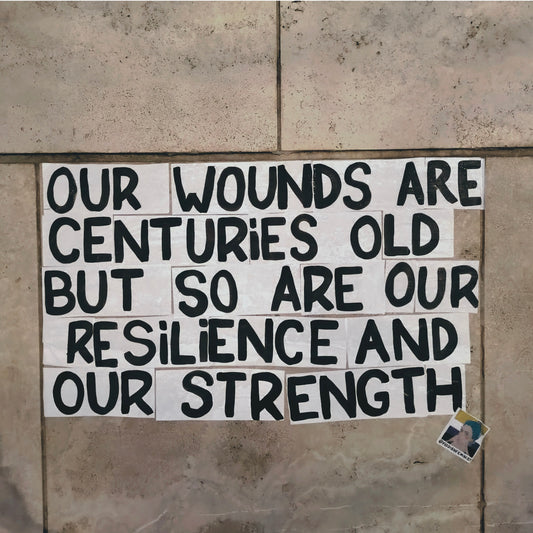 OUR WOUNDS ARE
CENTURiES OLD
BUT SO ARE OUR
RESiLiENCE AND
OUR STRENGTH